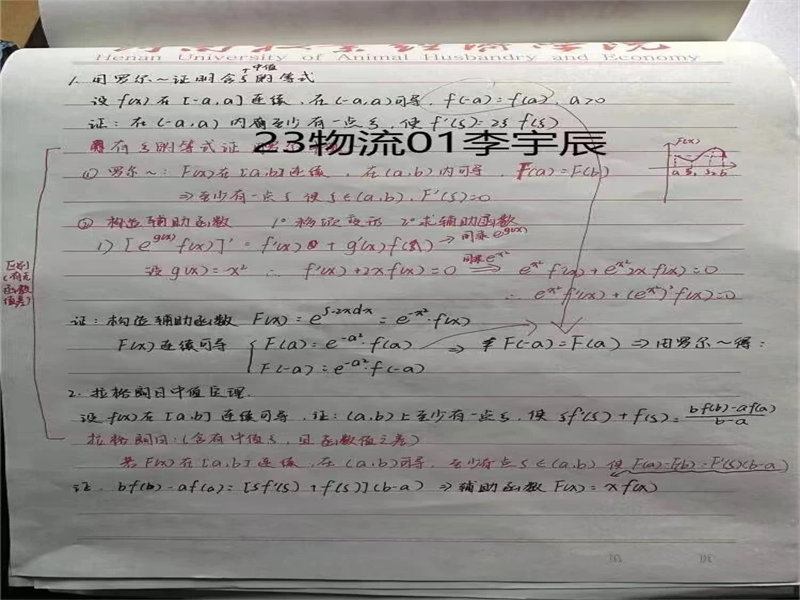 Henan University of Animal Husbandry and Economy
1. 用罗尔~证明含ξ的等式
中值
设 f(x) 在 [-a,a] 连续, 在 (-a,a) 可导, f(-a)=f(a), a>0
证: 在 (-a,a) 内 至少有一点ξ, 使 f'(ξ)=2ξ f(ξ)
23物流01李宇辰
有ξ的等式证
F(x)
① 罗尔~: F(x)在[a,b]连续, 在(a,b)内可导, F(a)=F(b)
⇒至少有一点ξ 使ξ∈(a,b), F'(ξ)=0
② 构造辅助函数 1° 移项变形 2° 求辅助函数
1) [e^{g(x)} f(x)]' = f'(x) + g'(x) f(x) → 同乘 e^{g(x)}
设 g(x)=x² ∴ f'(x)+2xf(x)=0 同乘e^{x²} ⇒ e^{x²} f'(x)+e^{x²}2x f(x)=0
∴ e^{x²} f'(x)+(e^{x²})' f(x)=0
区别
(有无
函数
值差)
证: 构造辅助函数 F(x)= e^{∫-2xdx} = e^{-x²}·f(x)
F(x) 连续可导 { F(a)=e^{-a²}·f(a) ⇒ F(-a)=F(a) ⇒ 由罗尔~得:
F(-a)=e^{-a²}·f(-a)
2. 拉格朗日中值定理.
设 f(x) 在 [a,b] 连续可导, 证: (a,b) 上至少有一点ξ, 使 ξf'(ξ)+f(ξ)= \frac{bf(b)-af(a)}{b-a}
拉格朗日: (含有中值ξ, 且函数值之差)
若 F(x) 在 [a,b] 连续, 在 (a,b) 可导, 至少有点ξ∈(a,b), 使 F(a)-F(b)=F'(ξ)(b-a)
证. bf(b)-af(a)=[ξf'(ξ)+f(ξ)](b-a) ⇒ 辅助函数 F(x)=xf(x)
第 页